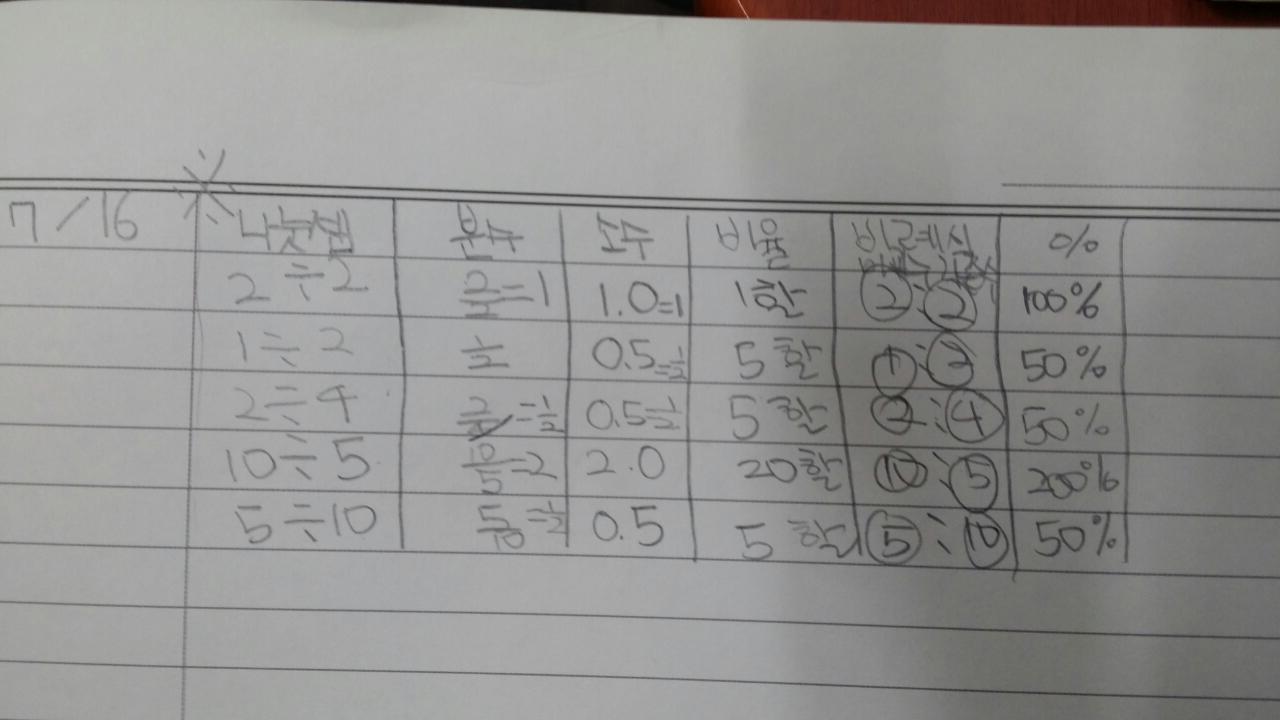 ※
7/16 나눗셈 분수 소수 비율 비례식 %
2÷2 2/2=1 1.0=1 1할 ②:② 100%
1÷2 1/2 0.5=1/2 5할 ①:② 50%
2÷4 2/4=1/2 0.5=1/2 5할 ②:④ 50%
10÷5 10/5=2 2.0 20할 ⑩:⑤ 200%
5÷10 5/10=1/2 0.5 5할 ⑤:⑩ 50%